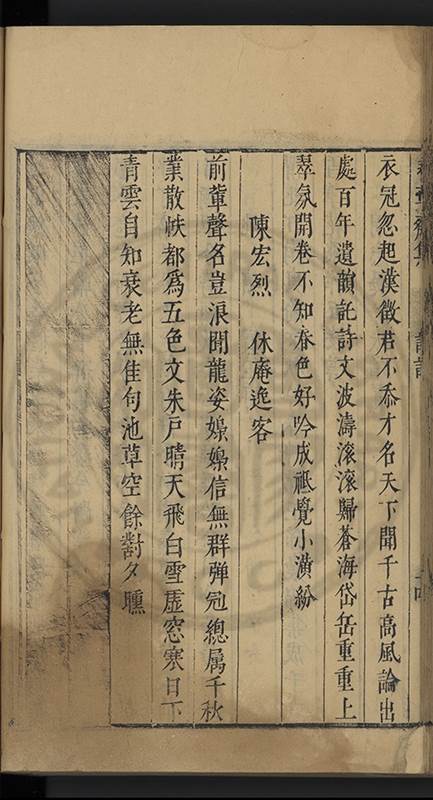 衣冠忽起漢徵君不忝才名天下聞千古高風論出
處百年遺韻託詩文波濤滚滚歸蒼海岱岳重重上
翠氛開卷不知春色好吟成祗覺小潢紛
陳宏烈　休庵逸客
前輩聲名豈浪聞龍姿嫋嫋信無群彈冠總属千秋
業散帙都爲五色文朱戸晴天飛白雪虛窓寒日下
青雲自知衰老無佳句池草空餘對夕曛